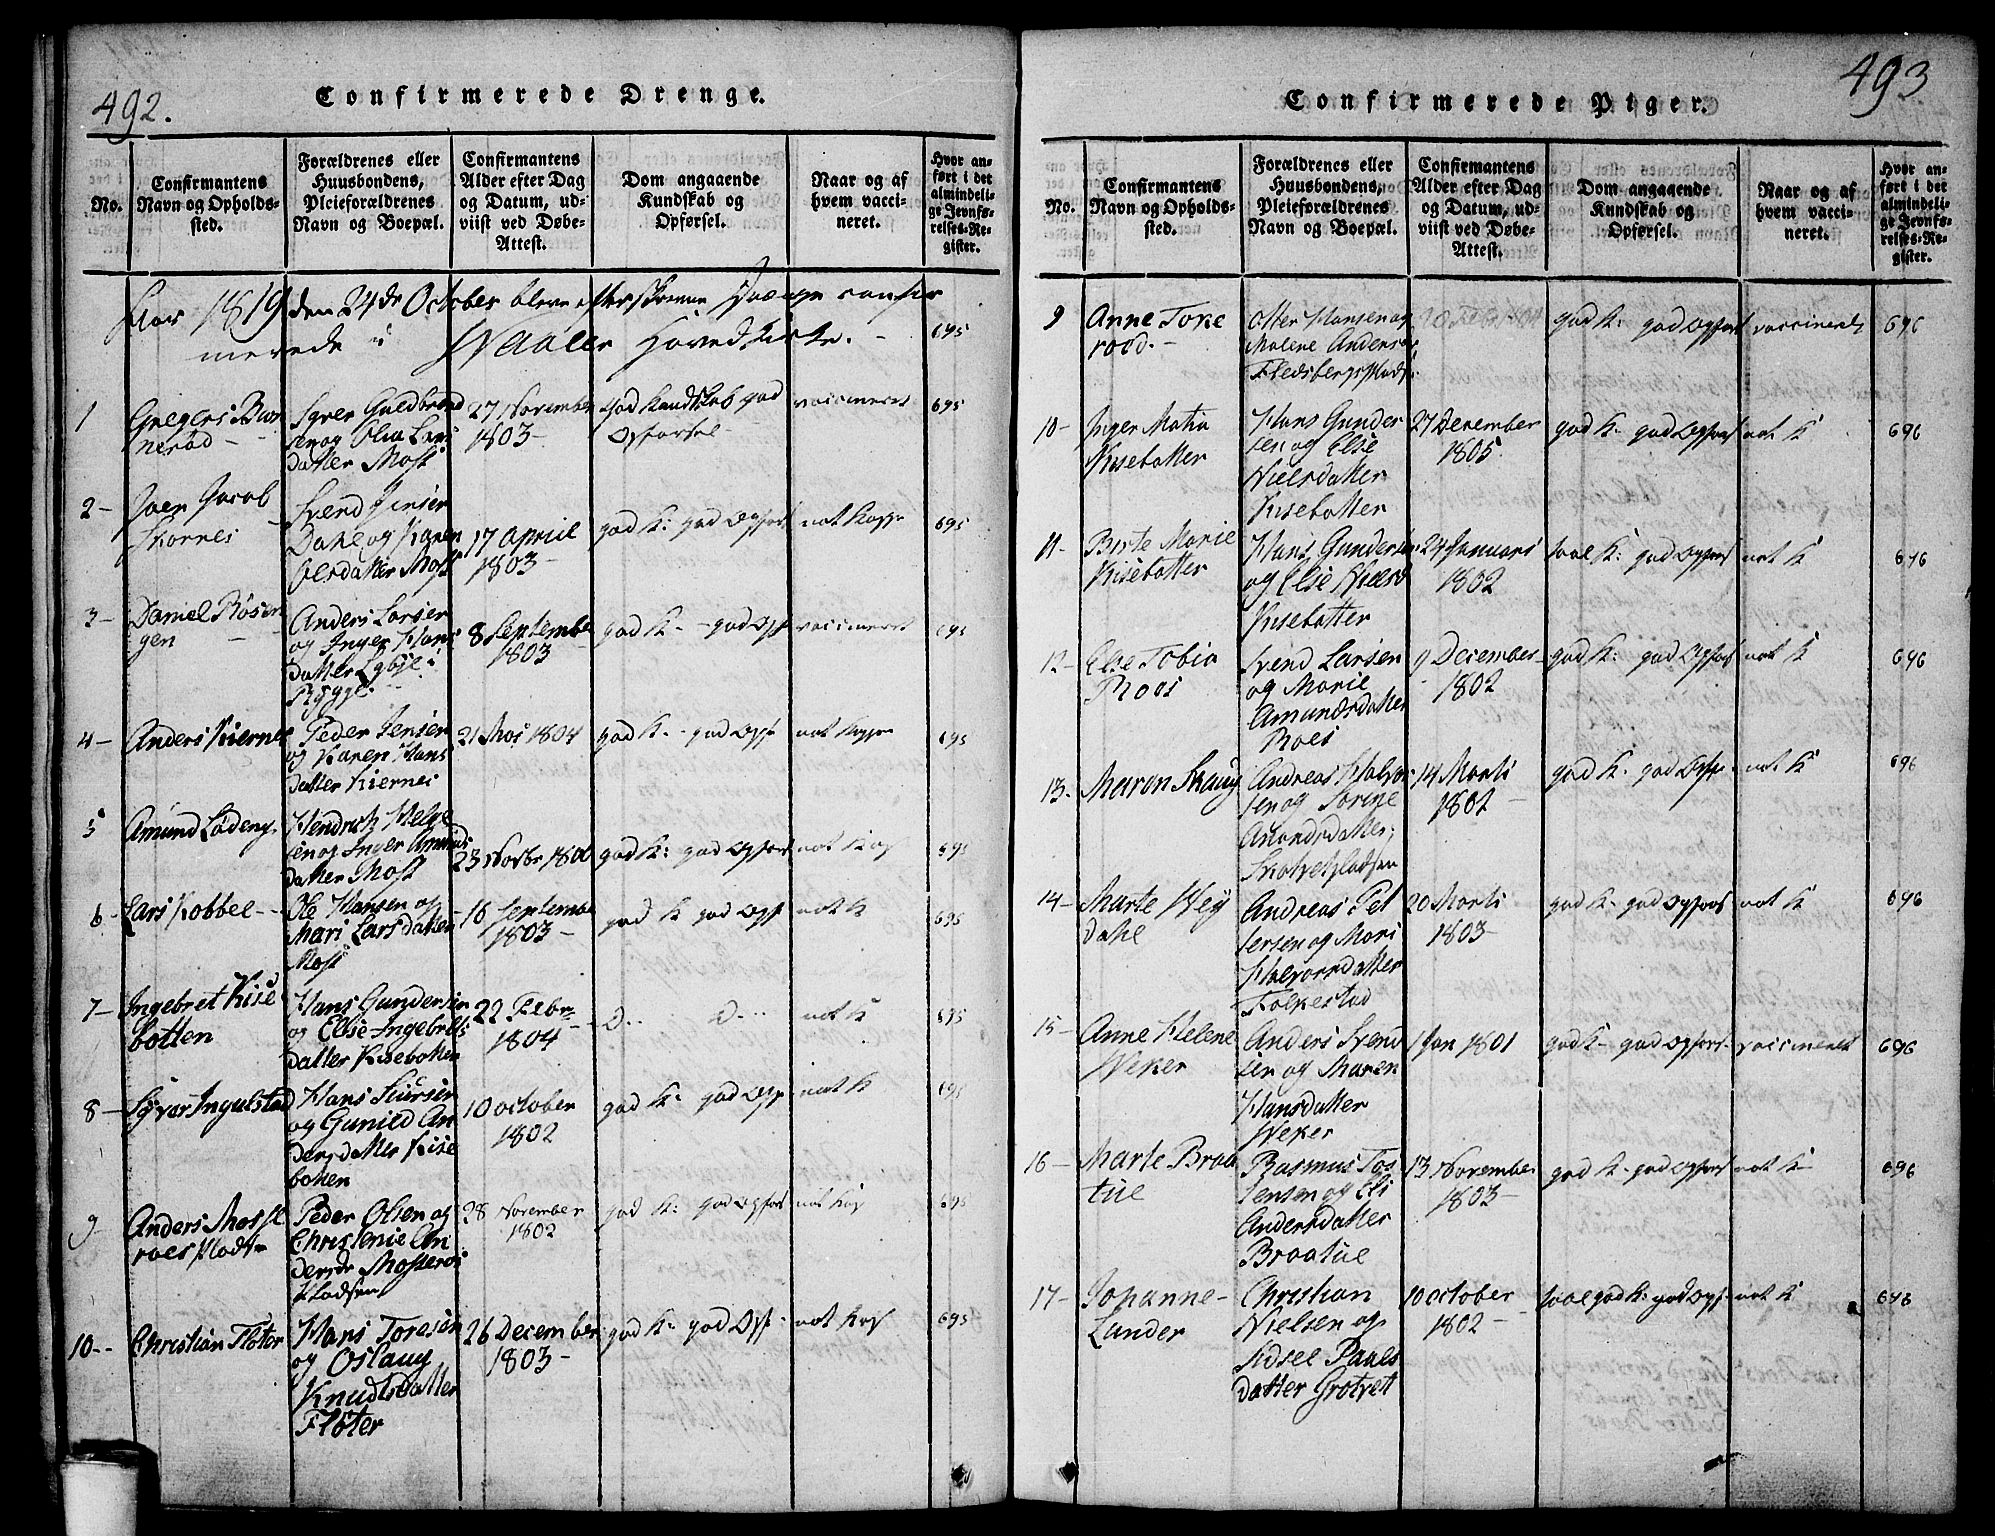 492.
Confirmerede Drenge.
No.
Confirmantens
Navn og Opholds-
sted.
Forældrenes eller
Huusbondens,
Pleieforældrenes
Navn og Boepæl.
Confirmantens
Alder efter Dag
og Datum, ud-
viist ved Døbe-
Attest.
Dom angaaende
Kundskab og
Opførsel.
Naar og af
hvem vacci-
neret.
Hvor an-
ført i det
almindeli-
ge Jevnfø-
relses-Re-
gister.
Aar 1819 den 24de October bleve efterskrevne Drænge confir
merede i Waaler Hoved Kirke. - 695
1
Gregers Bur
nerød - -
Syver Guldbrand
sen og Olia Lars
datter Moss
27 November
1803 -
God Kundskab god
Opførsel -
vaccineret
695
2 -
Joen Jacob
Skornes
Svend Jensen
Dahl og Karen
Olersdatter Moss
17 April
1803 -
god K: god Opførs
nat Kopp
695
3 -
Daniel Rosen
gen - -
Anders Larsen
og Inger Hans
datter i
Rygge
8 September
1803
god K - god Opf
vaccineret
695
4 -
Anders Kiernes
Peder Jensen
og Karen Hans
datter Kiernes
21 Mai 1804
god K - god Opf
nat Kopp
695
5
Amund Lødeng.
Hendrich Helge
sen og Inger Amunds
datter Moss
23 Novbr 1800
god K: god Opførs
nat Kop
695
6 -
Lars Kobbel - -
Ole Hansen og
Mari Larsdatter
Moss
16 Septembe
1803 -
god K god Opf
nat K
695
7 -
Ingebret Kise
botten
Hans Gundersen
og Else Ingebrets
datter Kisebotten
22 Febr
1804
D.. D...
nat K
695
8 -
Syver Ingulstad
Hans Siversen
og Gunild An
dersdatter Kise
botten
10 october
1802
god K: god Opf
nat K
695
9
Anders Mosse
roes Pladsn
Peder Olsen og
Christenie An
dersdr Mosserøs
Pladsen
28 November
1802
god K: god Opførs
nat Kop
695
10 - -
Christian Fløter
Hans Toresen
og Oslaug
Knudtsdatter
Fløter
26 December
1803 -
god K - god Opf -
nat Kop
695
493
Confirmerede Piger.
No.
Confirmantens
Navn og Opholds-
sted.
Forældrenes eller
Huusbondens,
Pleieforældrenes
Navn og Boepæl.
Confirmantens
Alder efter Dag
og Datum, ud-
viist ved Døbe-
Attest.
Dom angaaende
Kundskab og
Opførsel.
Naar og af
hvem vacci-
neret.
Hvor an-
ført i det
almindeli-
ge Jevnfø-
relses-Re-
gister.
9
Anne Toke
rød. -
Otter Hansen og
Malene Anders
Fledsbergspladsn
god K: god Opførs
vaccineret
696
10 -
Inger Matia
Kisebotten
Hans Gunder
sen og Else
Nielsdatter
Kisebotten
27 December
1805
god K - god Opførs
nat K
696
11 -
Birte Marie
Kisebotten
Hans Gundersen
og Else Nielsd
Kisebotten
24 Januari
1802
K: god Opførs
nat K
696
12 -
Else Tobia
Roos
Svend Larsen
og Marie
Amundsdatter
Roes
9 December
1802
god K: god Opførs
nat K
696
13.
Maren Skaug
Andreas Halvor
sen og Sorine
Amondsdatter
14 Marti
1802 -
god K - god Opf -
nat K
696
14 -
Marte Hey
dahl
Andreas Pet
tersen og Mari
Halvorsdatter
Folkestad
20 Marti
1803 -
god K - god Opførs
nat K
696
15 -
Anne Helene
Weker
Anders Svend
sen og Maren
Hansdatter
Weker
1 Jan 1801
god K - god Opførs -
vaccineret
696
16 -
Marte Braa
tue
Rasmus Tos
tensen og Eli
Andersdatter
Braatue
13 November
1803 -
god K - god Opførs
nat K
696
17 -
Johanne -
Lunder
Christian
Nielsen og
Sidsel Pauls
datter Grotvett
10 october
1802 -
god K: god Opf -
nat K
696